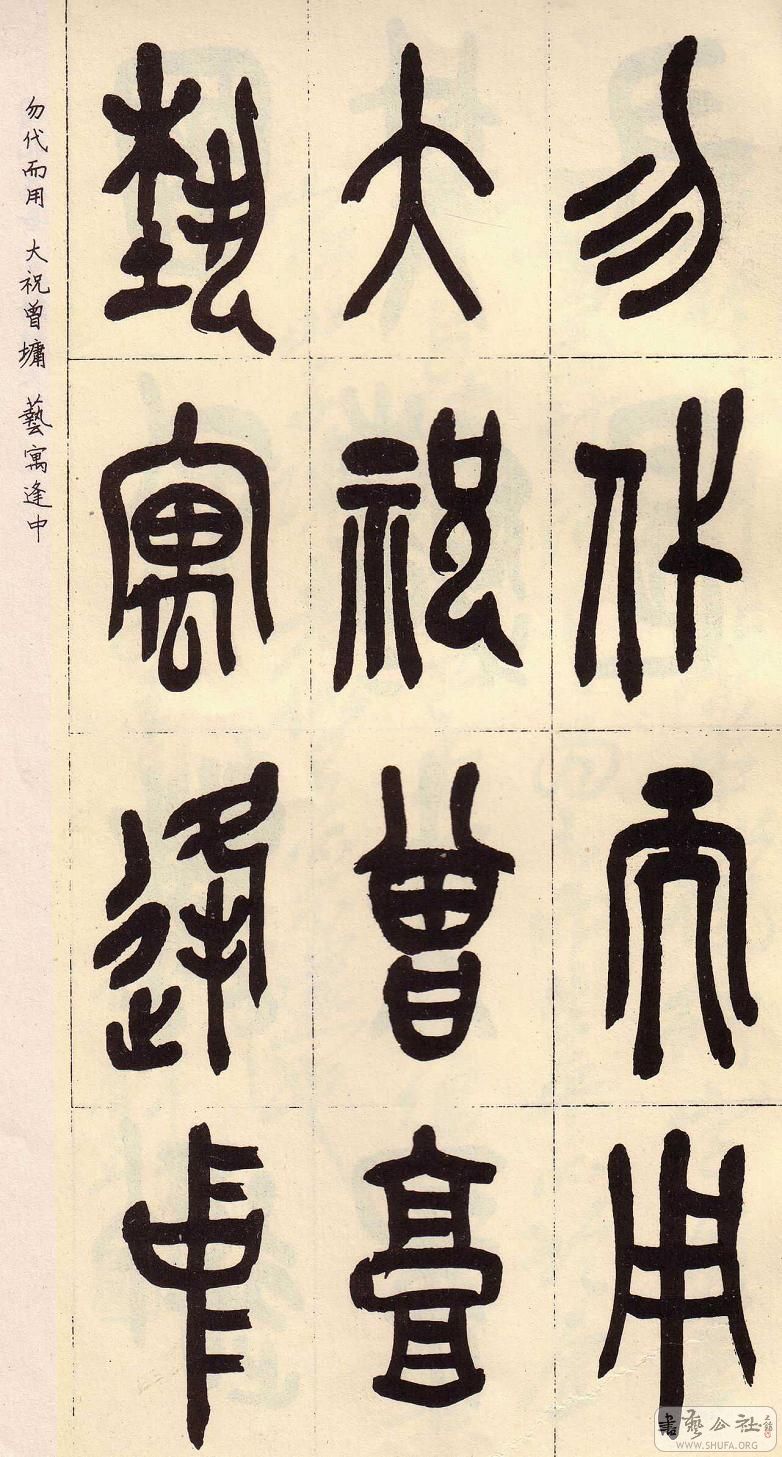 勿代而用
大祝曾墉
藝寓逢中
勿代而用 大祝曾墉 藝寓逢中
書藝公社
WWW.SHUFA.ORG